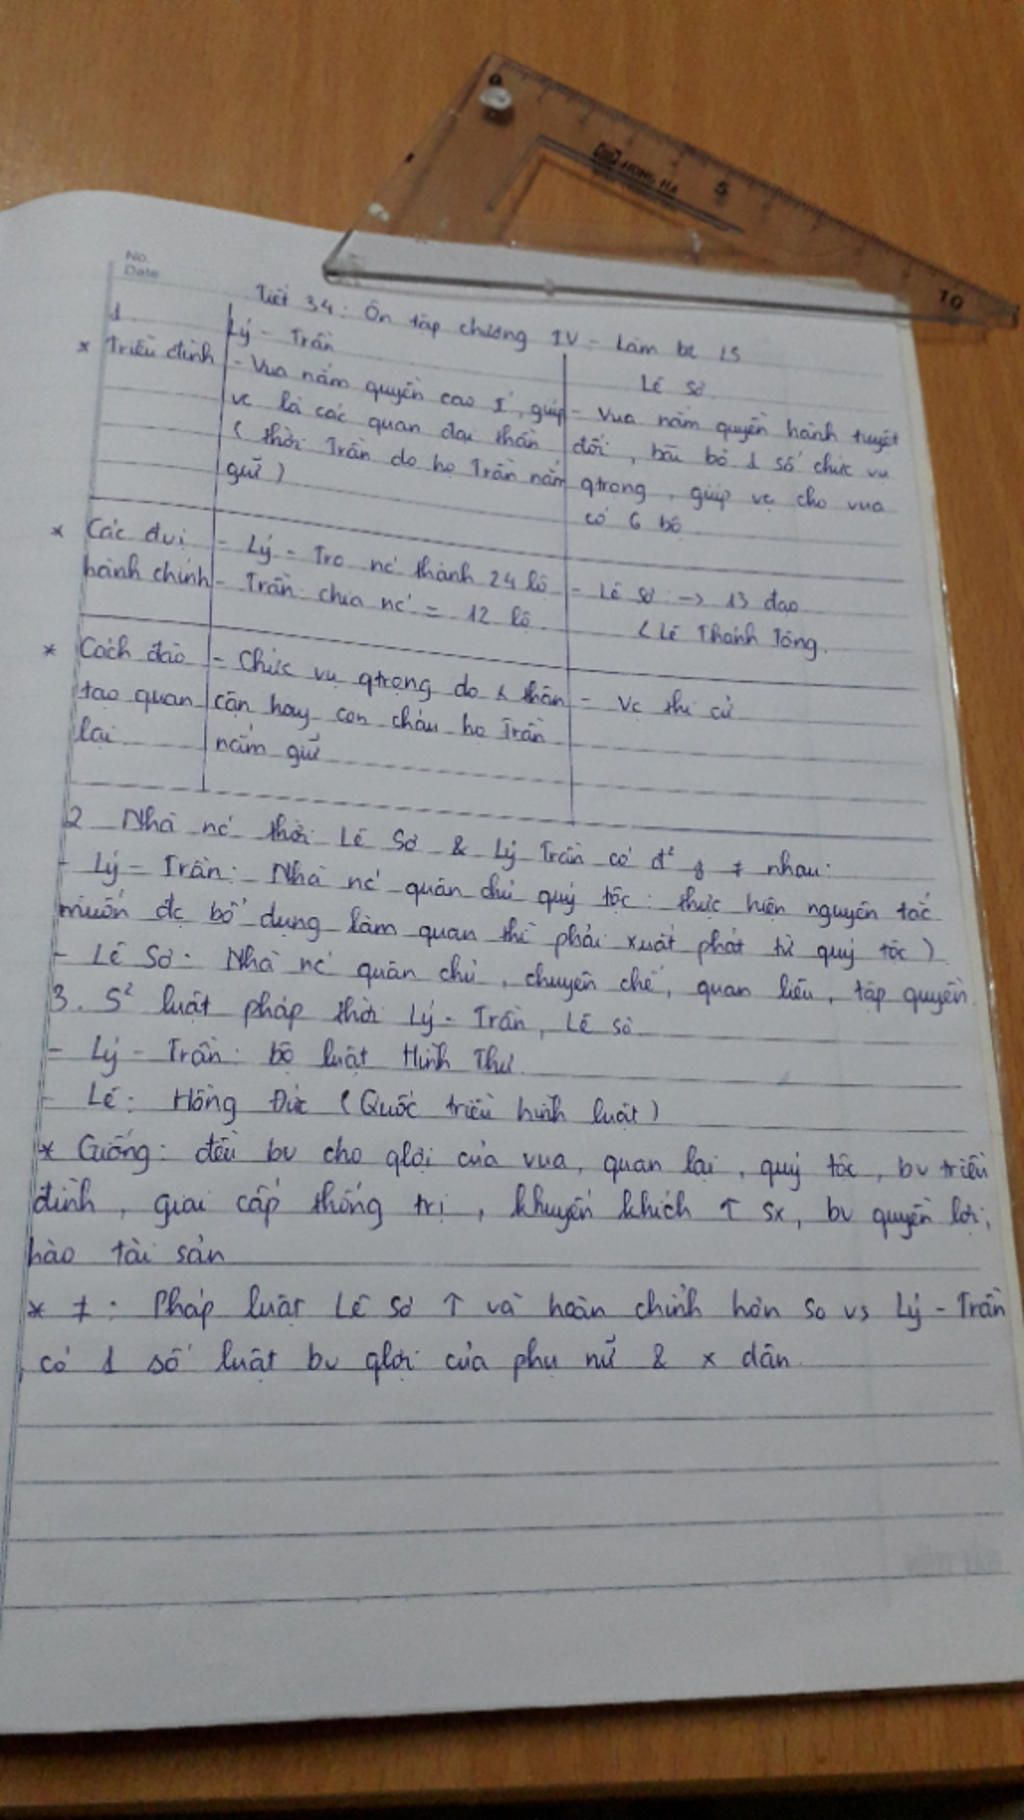 No.
Date
HONG HA
5
10
Tiết 34: Ôn tập chương IV - Làm bt LS
1
Lý - Trần
Lê sơ
* Triều đình
- Vua nắm quyền cao I', giúp
vc là các quan đại thần
( thời Trần do họ Trần nắm
giữ )
- Vua nắm quyền hành tuyệt
đối, bãi bỏ 1 số chức vụ
qtrọng, giúp vc cho vua
có 6 bộ
* Các đvị
hành chính
- Lý - nc thành 24 lộ
- Trần: chia nc = 12 lộ
- Lê sơ: -> 13 đạo
( Lê Thánh Tông.
* Cách đào
tạo quan
lại
- Chức vụ qtrọng do thân
cận hay con cháu họ Trần
nắm giữ
- Vc thi cử
2 Nhà nc thời Lê Sơ & Lý Trần có đ² ≠ nhau:
- Lý - Trần: Nhà nc quân chủ quý tộc: thực hiện nguyên tắc
muốn đc bổ dụng làm quan thì phải xuất phát từ quý tộc )
- Lê Sơ: Nhà nc quân chủ, chuyên chế, quan liêu, tập quyền
3. S² luật pháp thời Lý - Trần, Lê sơ
- Lý - Trần: bộ luật Hình Thư
- Lê: Hồng Đức (Quốc triều hình luật)
* Giống: đều bv cho qlợi của vua, quan lại, quý tộc, bv triều
đình, giai cấp thống trị, khuyến khích ↑ sx, bv quyền lợi,
hào tài sản
* ≠: Pháp luật Lê Sơ ↑ và hoàn chỉnh hơn so vs Lý - Trần
có 1 số luật bv qlợi của phụ nữ & x dân